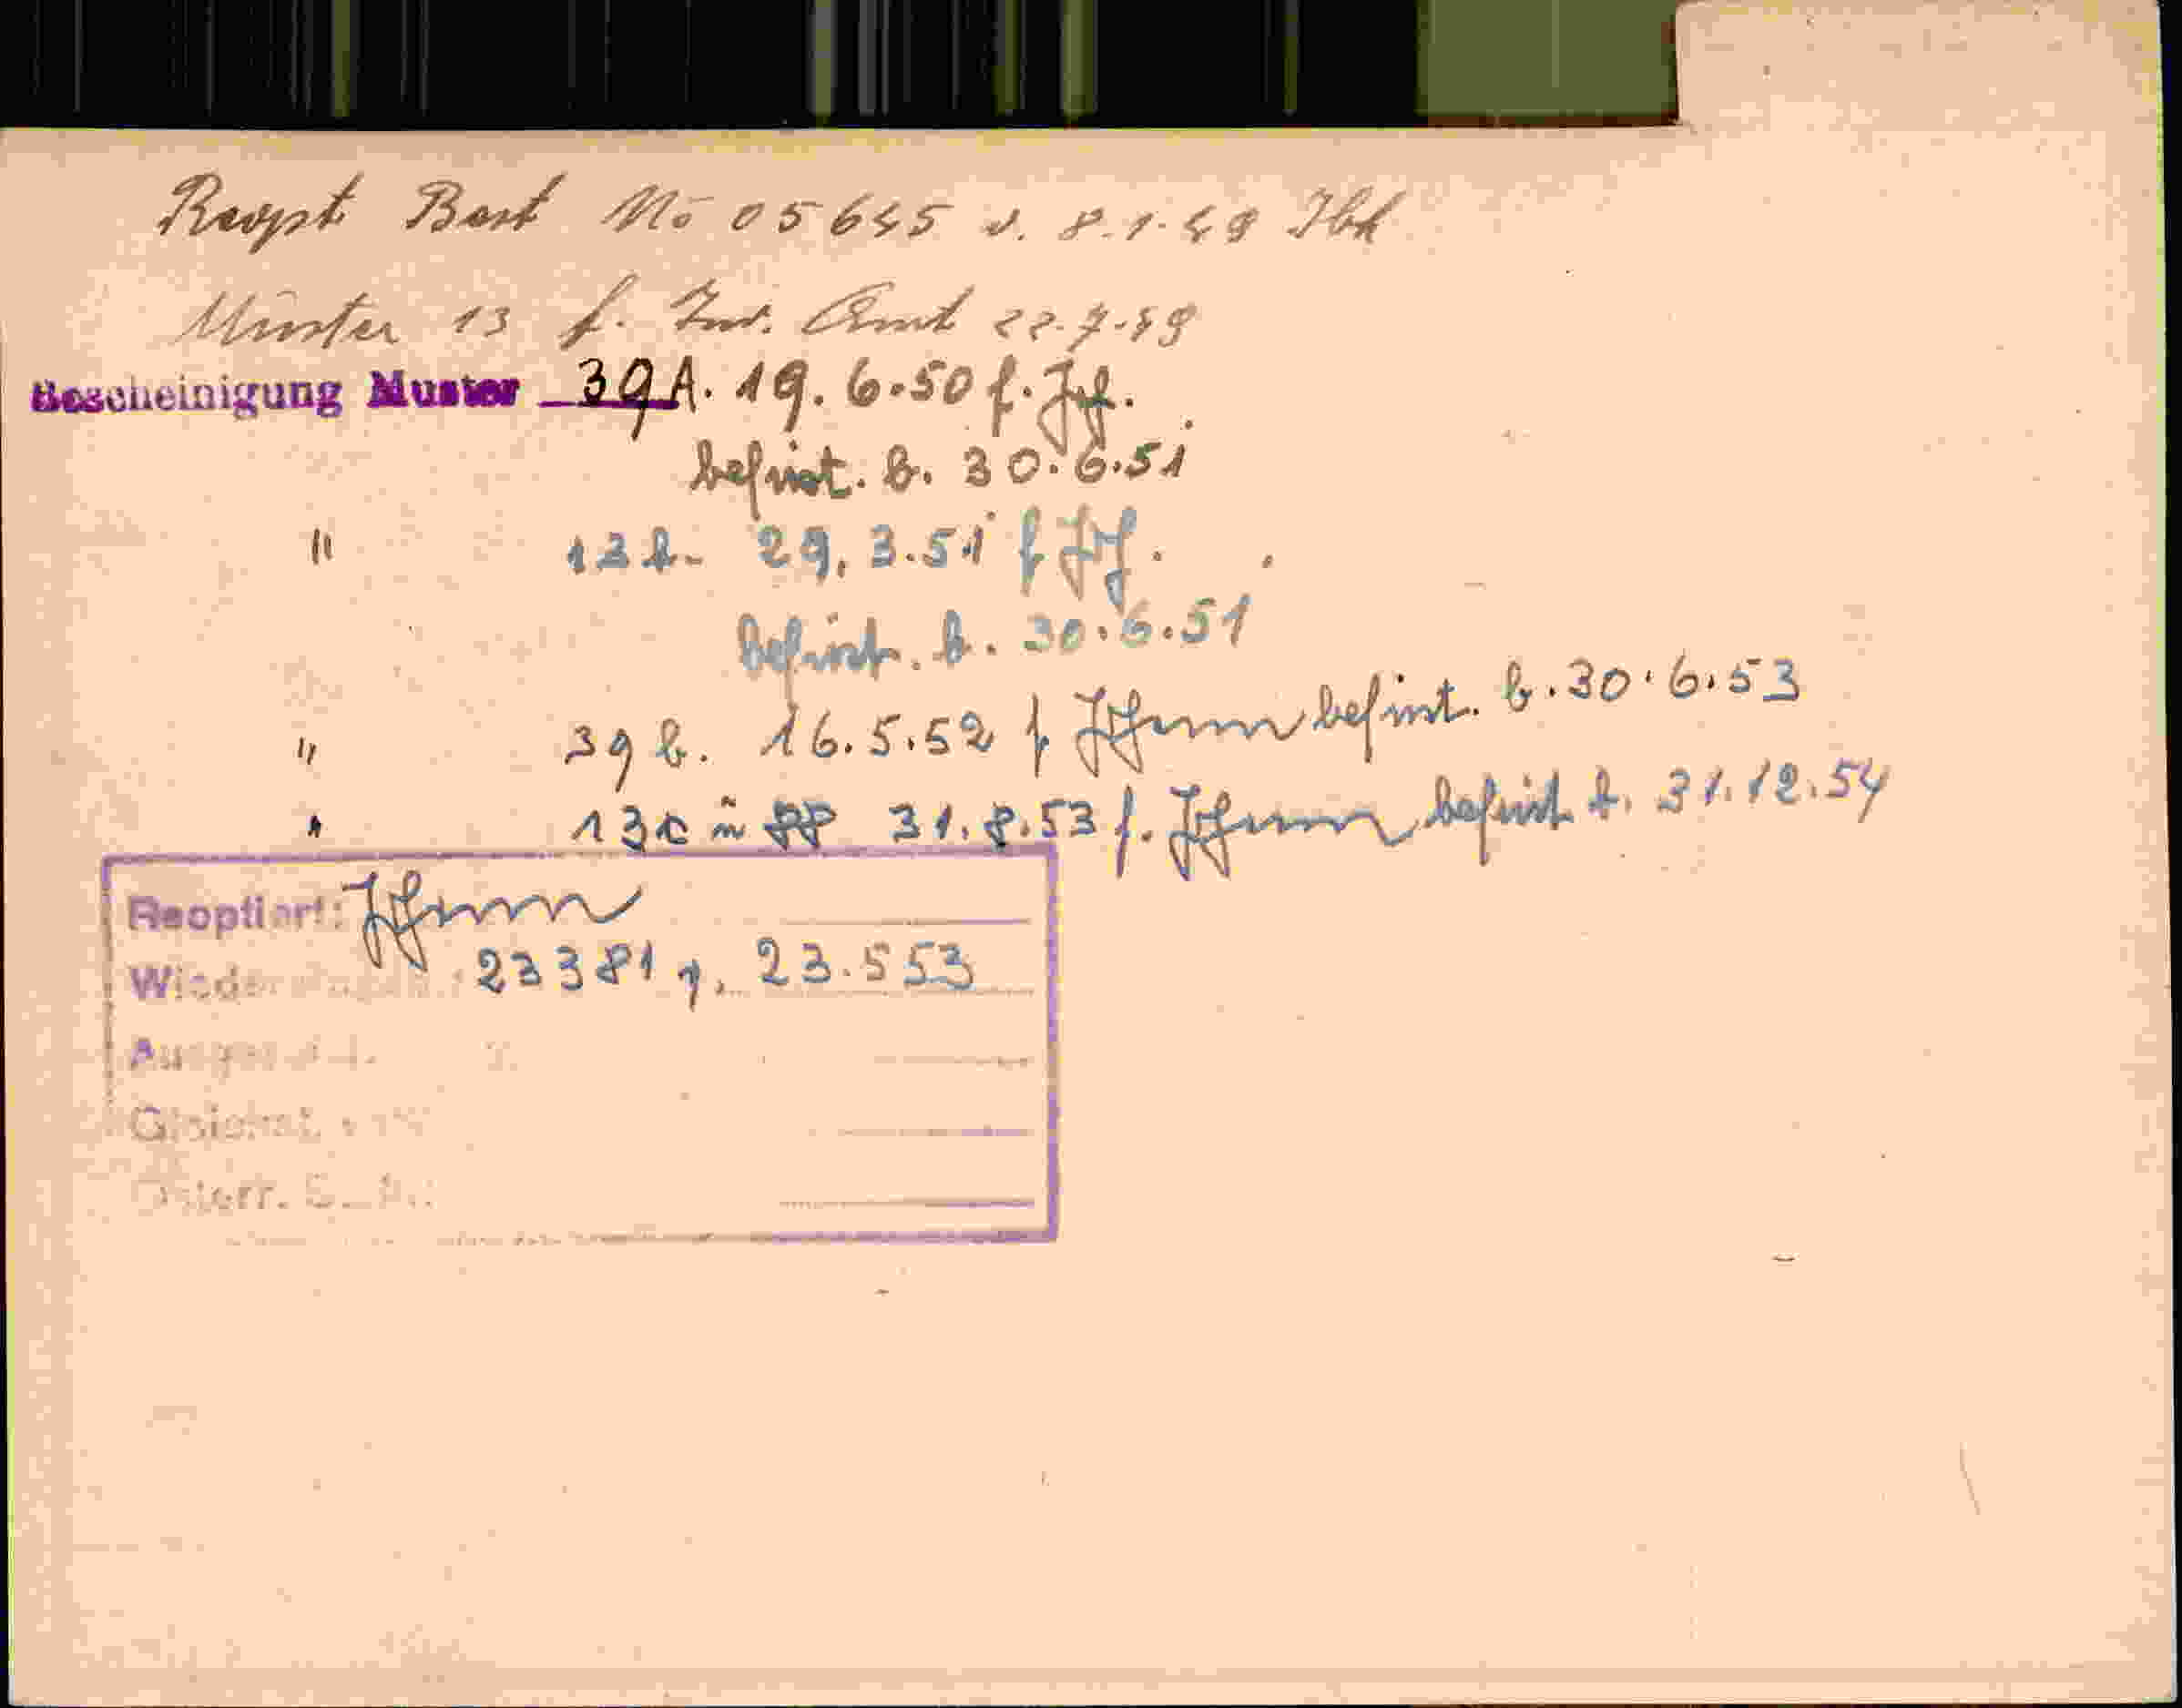 Reopt Best No 05645 v. 8.1.49 Ibk
Muster 13 f. Inv. Amt 22.7.49
Bescheinigung Muster 39A. 19. 6.50 f.
befrist. b. 30.6.51
" 13b. 29.3.51 f
befrist. b. 30.6.51
" 39 b. 16.5.52 f befrist. b. 30.6.53
" 13c 31.8.53 f. befrist b. 31.12.54
Reoptiert:
23381 v. 23.553
Österr.